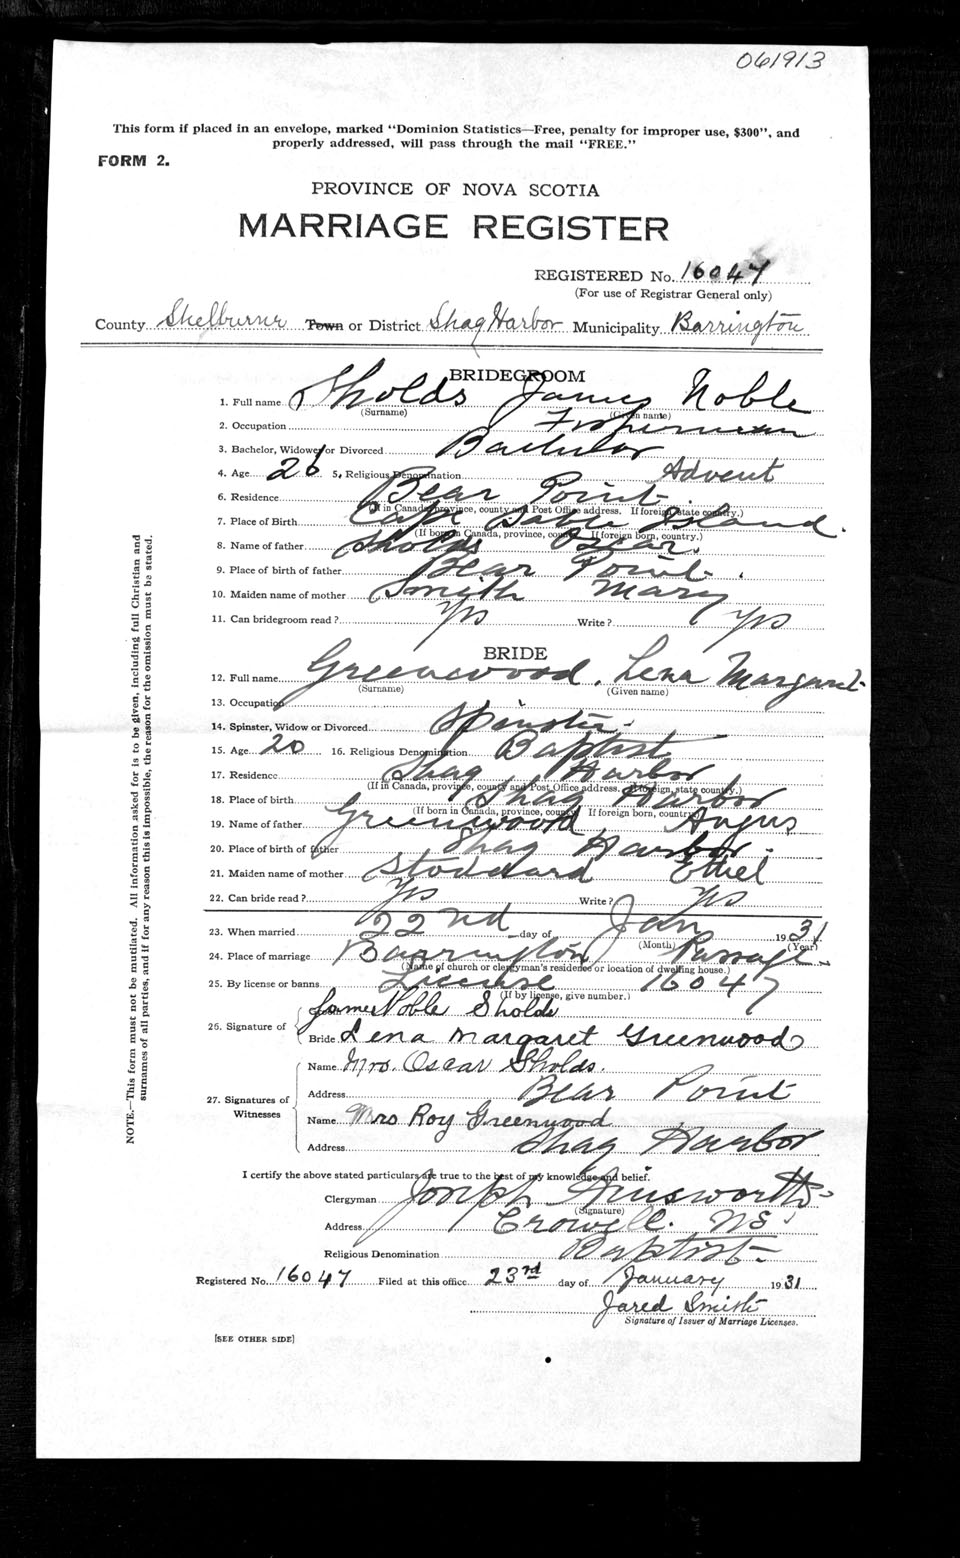 061913
This form if placed in an envelope, marked "Dominion Statistics—Free, penalty for improper use, $300", and
properly addressed, will pass through the mail "FREE."
FORM 2.
PROVINCE OF NOVA SCOTIA
MARRIAGE REGISTER
REGISTERED No. 16047
(For use of Registrar General only)
County Shelburne Town or District Shag Harbor Municipality Barrington
BRIDEGROOM
1. Full name Sholds James Noble
(Surname) (Given name)
2. Occupation Fisherman
3. Bachelor, Widower or Divorced Bachelor
4. Age 26 5. Religious Denomination Advent
6. Residence Bear Point
(If in Canada, province, county and Post Office address. If foreign, state country.)
7. Place of Birth Cape Sable Island.
(If born in Canada, province, county. If foreign born, country.)
8. Name of father Sholds
9. Place of birth of father Bear Point.
10. Maiden name of mother Smith Mary
11. Can bridegroom read? Yes Write? Yes
BRIDE
12. Full name Greenwood, Lena Margaret
(Surname) (Given name)
13. Occupation
14. Spinster, Widow or Divorced Spinster.
15. Age 20 16. Religious Denomination Baptist
17. Residence Shag Harbor
(If in Canada, province, county and Post Office address. If foreign, state country.)
18. Place of birth Shag Harbor
(If born in Canada, province, county. If foreign born, country)
19. Name of father Greenwood, Angus
20. Place of birth of father Shag Harbor.
21. Maiden name of mother Stoddard Ethel
22. Can bride read? Yes Write? Yes
23. When married 22nd day of Jan 1931
(Month) (Year)
24. Place of marriage Barrington Passage.
(Name of church or clergyman's residence or location of dwelling house.)
25. By license or banns License 16047
(If by license, give number.)
26. Signature of
James Noble Sholds
Bride Lena Margaret Greenwood
27. Signatures of Witnesses
Name Mrs. Oscar Sholds.
Address Bear Point
Name Mrs Roy Greenwood
Address Shag Harbor
I certify the above stated particulars are true to the best of my knowledge and belief.
Clergyman Joseph Ainsworth
(Signature)
Address Crowell. NS.
Religious Denomination Baptist
Registered No. 16047 Filed at this office 23rd day of January 1931
Jared Smith
Signature of Issuer of Marriage Licenses.
[SEE OTHER SIDE]
NOTE.—This form must not be mutilated. All information asked for is to be given, including full Christian and
surnames of all parties, and if for any reason this is impossible, the reason for the omission must be stated.